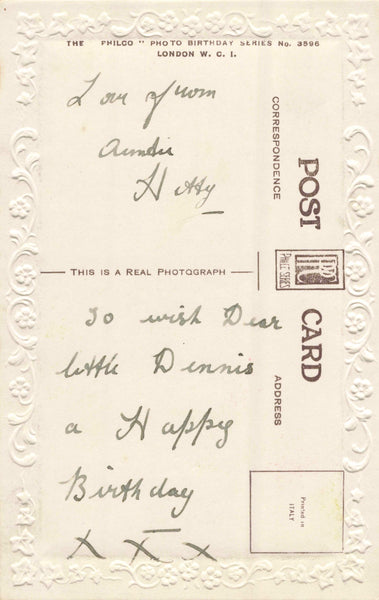 THE "PHILCO" PHOTO BIRTHDAY SERIES No. 3596
LONDON W. C. 1.
Love from
Auntie
Hetty
CORRESPONDENCE
POST
PHILCO SERIES
THIS IS A REAL PHOTOGRAPH
CARD
ADDRESS
To wish Dear
little Dennis
a Happy
Birthday
X X X
Printed in
ITALY